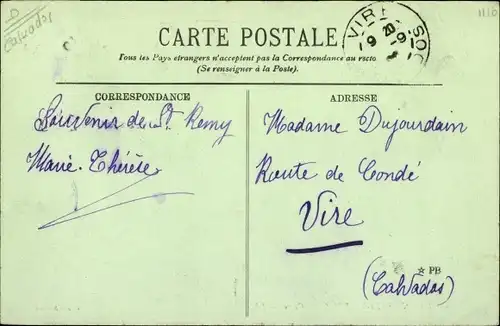 Calvados
1110
VIRE
20
9 -9
CARTE POSTALE
Tous les Pays étrangers n'acceptent pas la Correspondance au recto
(Se renseigner à la Poste).
CORRESPONDANCE
Souvenir de St Remy
Marie-Thérèse
ADRESSE
Madame Dujourdain
Route de Condé
Vire
PB
(Calvados)